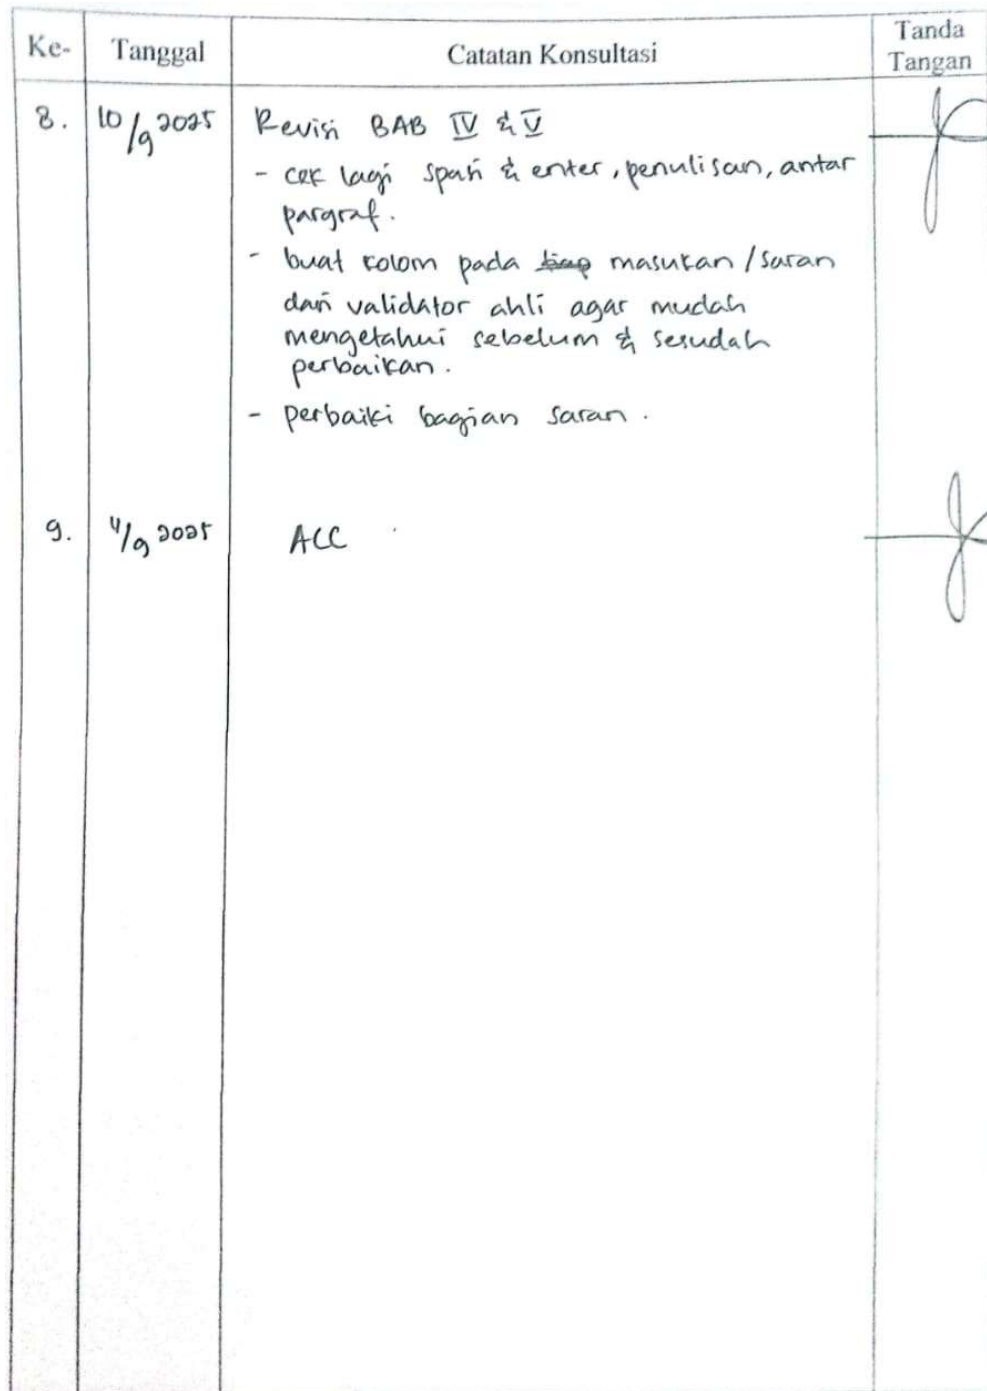 Ke- Tanggal Catatan Konsultasi Tanda Tangan
8. 10/9 2025 Revisi BAB IV & V
- cek lagi spasi & enter, penulisan, antar
pargraf.
- buat kolom pada masukan / saran
dari validator ahli agar mudah
mengetahui sebelum & sesudah
perbaikan.
- perbaiki bagian saran.
9. 11/9 2025 ACC